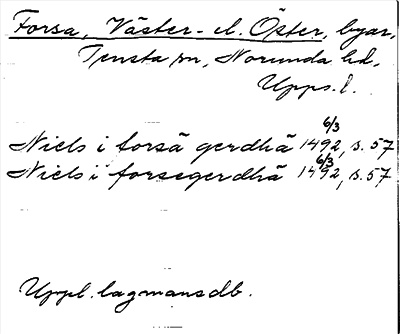 Forsa, Väster- o. Öster, byar,
Tensta sn, Norunda hd,
Upps. l.
6/3
Niels i forsä gerdhä 1492, s. 57
6/3
Niels i forsegerdhä 1492, s. 57
Uppl. lagmansdb.